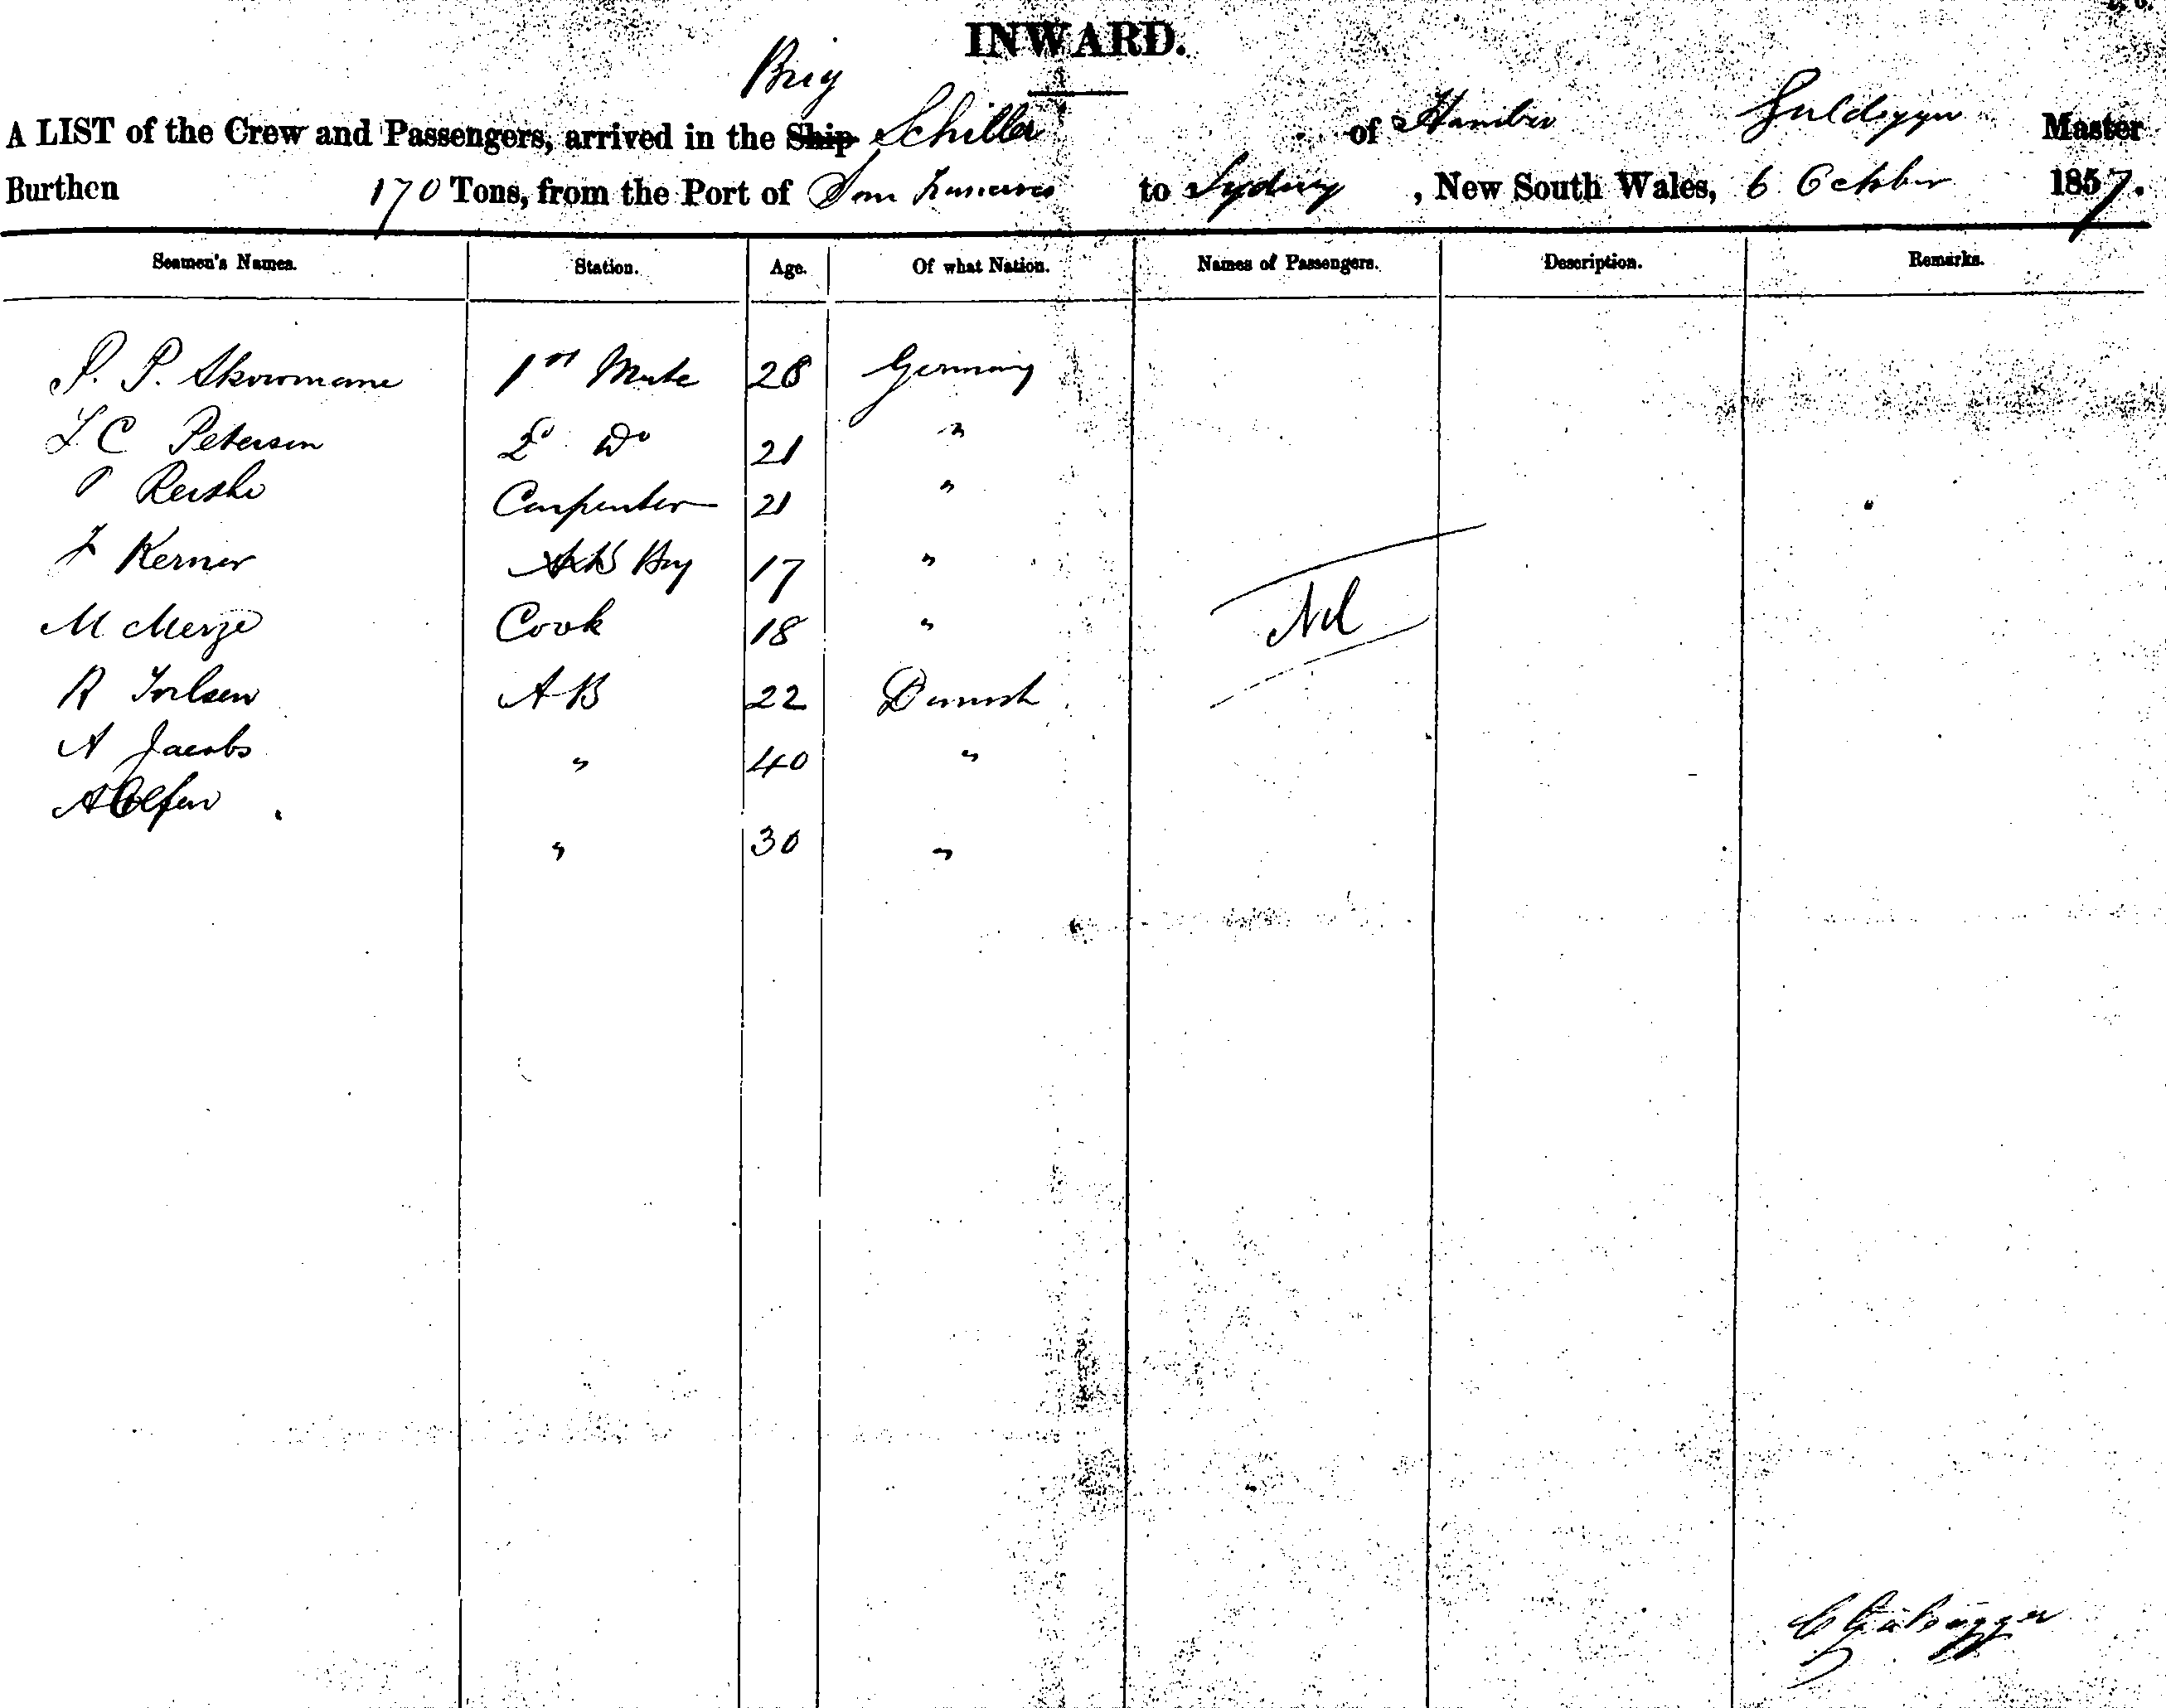 INWARD.
Brig
A LIST of the Crew and Passengers, arrived in the Ship Schiller of Master
Burthen 170 Tons, from the Port of San to Sydney, New South Wales, 6 October 1857.
Seamen's Names. Station. Age. Of what Nation. Names of Passengers. Description. Remarks.
P. P. 1st Mate 28 Germany
C Petersen 2d Do 21 "
Carpenter 21 "
Kerner AB Boy 17 "
M Merze Cook 18 " Nil
R AB 22 Danish
A Jacobs " 40 "
A Olsen " 30 "